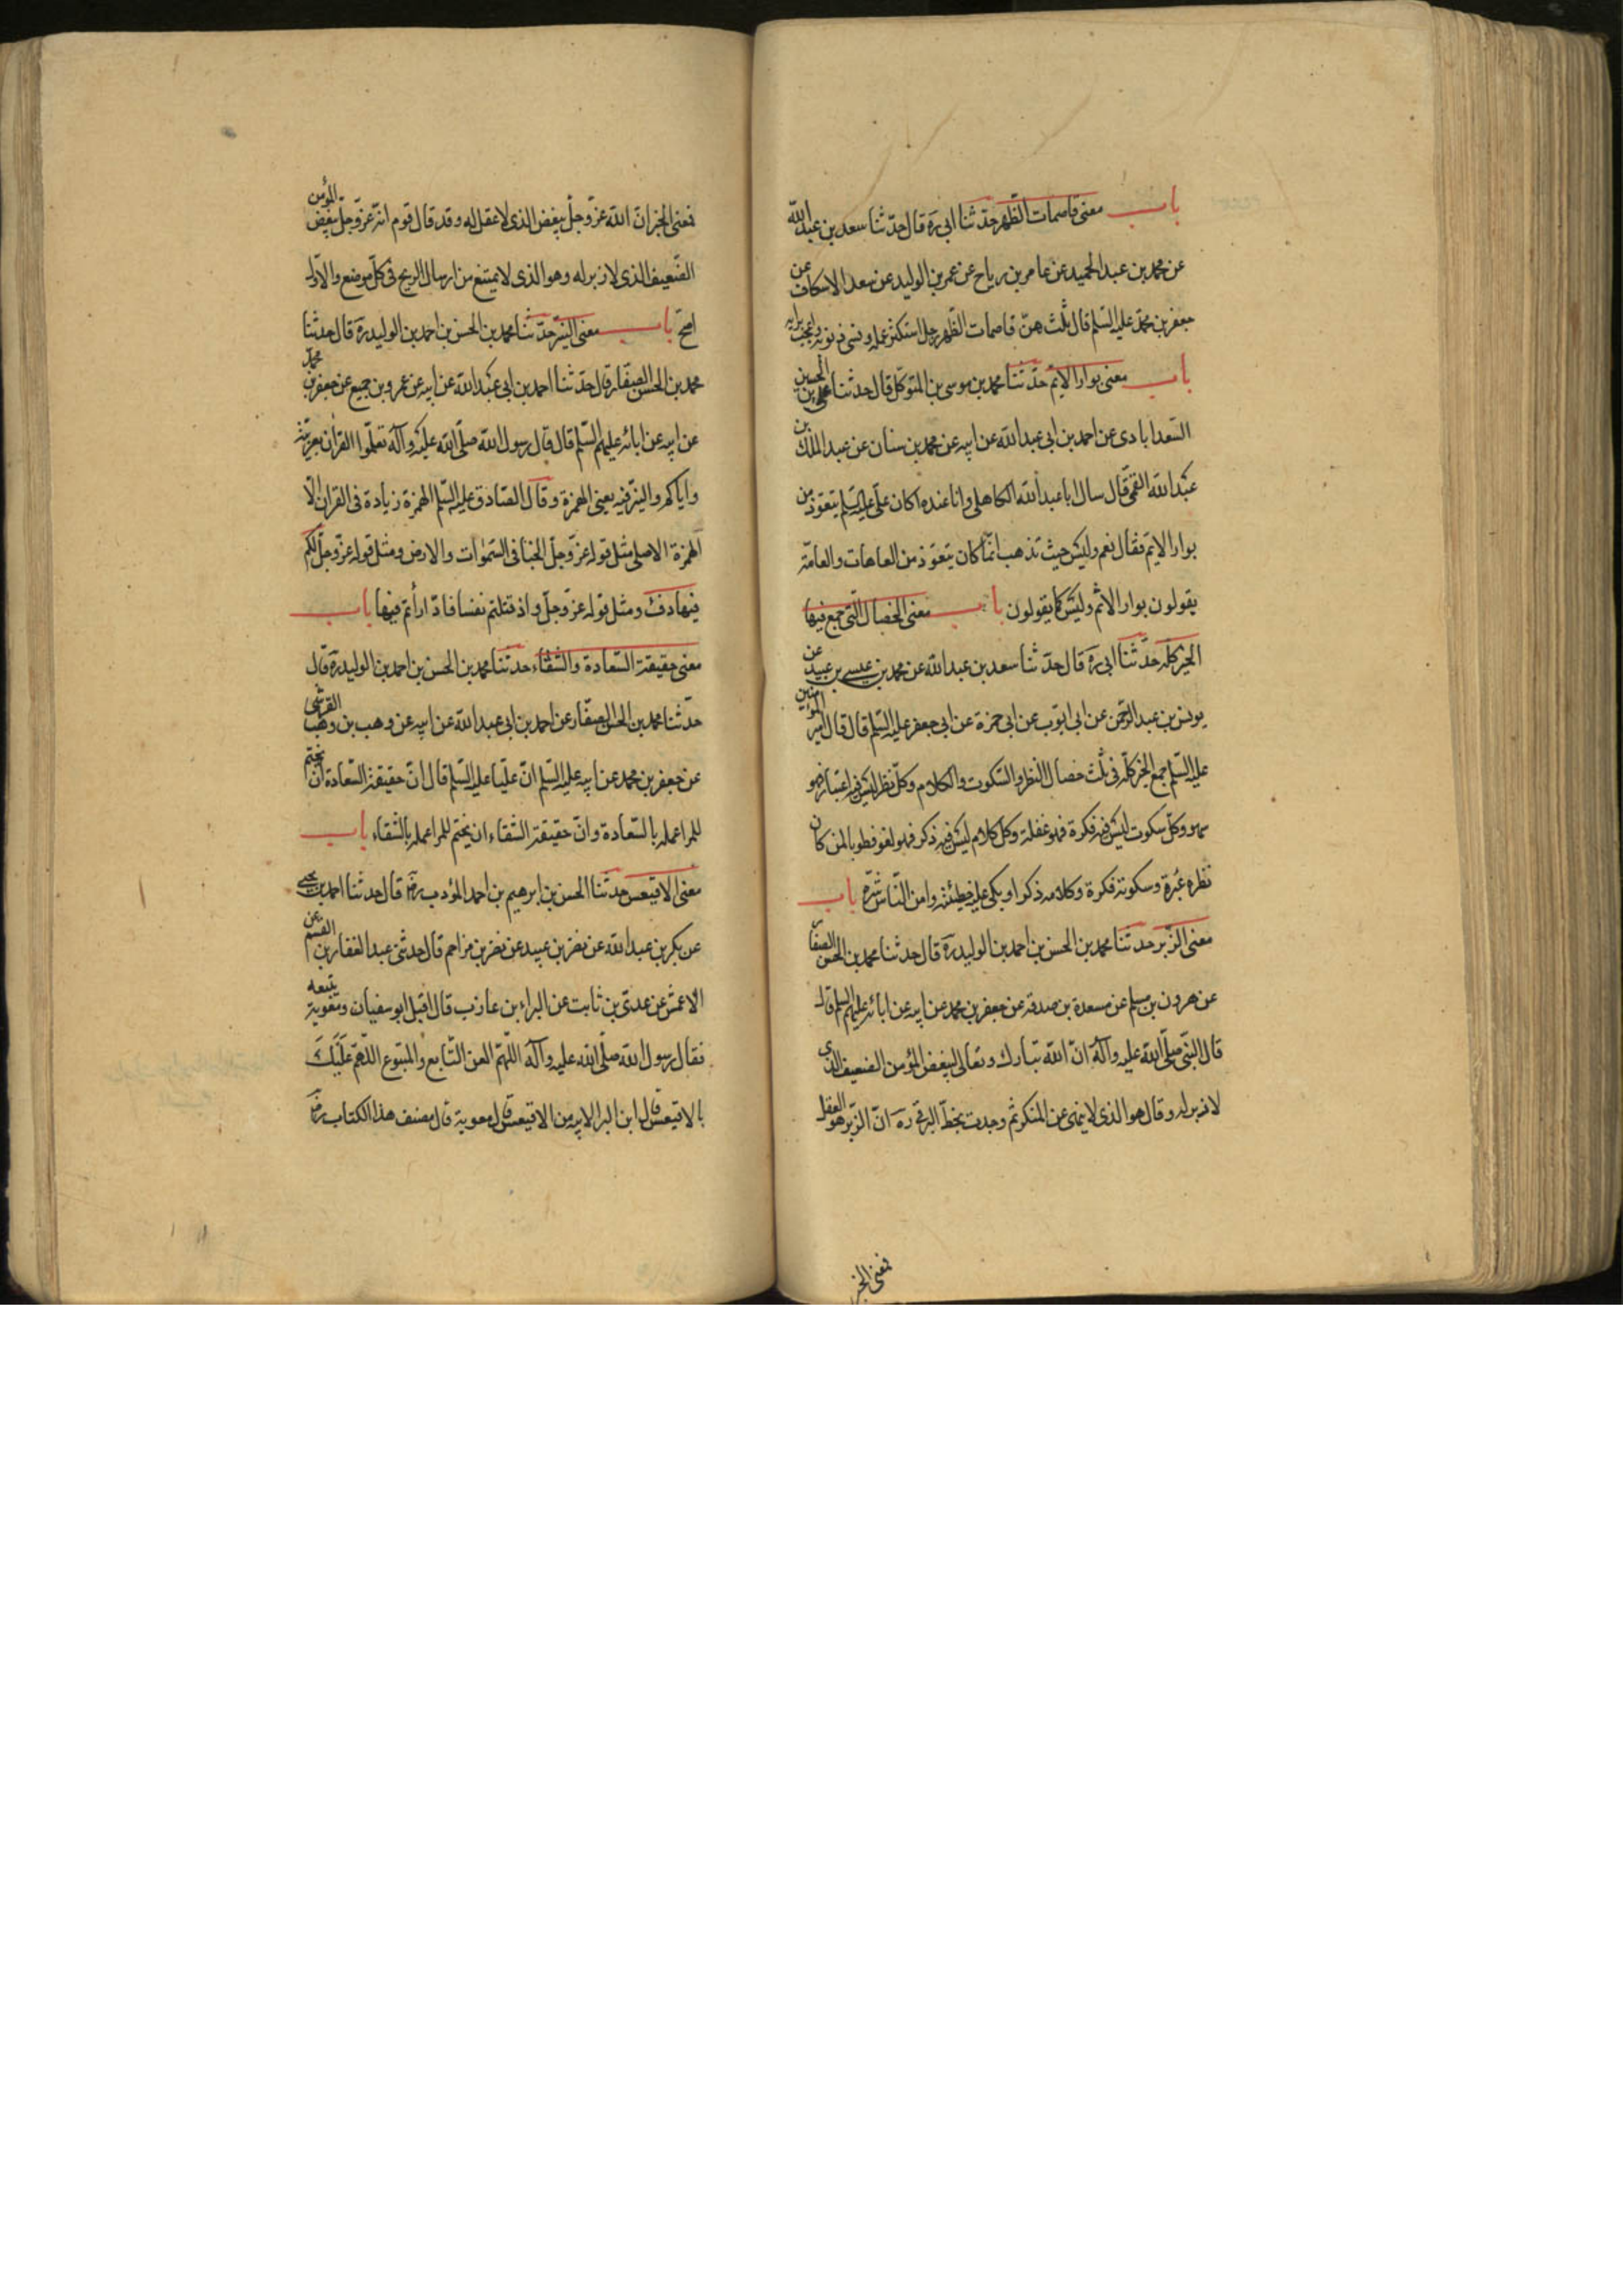 باب معنى قاصمات الظهر حدثنا ابى ره قال حدثنا سعد بن عبد الله
عن محمد بن عبد الحميد عن عامر بن رياح عن عمر بن الوليد عن سعد الاسكاف عن
جعفر بن محمد عليه السلم قال ثلث هن قاصمات الظهر رجل استكثر عمله ونسى ذنوبه واعجب برايه
باب معنى بوار الايم حدثنا محمد بن موسى بن المتوكل قال حدثنا على بن الحسين
السعد ابادى عن احمد بن ابى عبد الله عن ابيه عن محمد بن سنان عن عبد الملك بن
عبد الله القمى قال سال ابا عبد الله الكاهلى وانا عنده اكان على عليه السلم يتعوذ من
بوار الايم فقال نعم وليس حيث تذهب انما كان يتعوذ من العاهات والعامة
يقولون بوار الاثم وليس كما يقولون باب معنى الخصال التى جمع فيها
الخير كله حدثنا ابى ره قال حدثنا سعد بن عبد الله عن محمد بن عيسى بن عبيد عن
يونس بن عبد الرحمن عن ابى ايوب عن ابى حمزة عن ابى جعفر عليه السلم قال قال امير المؤمنين
عليه السلم جمع الخير كله فى ثلث خصال النظر والسكوت والكلام وكل نظر ليس فيه اعتبار فهو
سهو وكل سكوت ليس فيه فكرة فهو غفلة وكل كلام ليس فيه ذكر فهو لغو فطوبا لمن كان
نظره عبرة وسكوته فكرة وكلامه ذكرا وبكى على خطيئته وامن الناس شره باب
معنى الزبر حدثنا محمد بن الحسن بن احمد بن الوليد ره قال حدثنا محمد بن الحسن الصفار
عن هرون بن مسلم عن مسعدة بن صدقة عن جعفر بن محمد عن ابيه عن ابائه عليهم السلم قال
قال النبى صلى الله عليه وآله ان الله تبارك وتعالى ليبغض المؤمن الضعيف الذى
لا زبر له وقال هو الذى لا ينهى عن المنكر ثم وجدت بخط البرقى ره ان الزبر هو العقل
فمعنى الخبر
فمعنى الخبر ان الله عز وجل يبغض الذى لا عقل له وقد قال قوم انه عز وجل يبغض المؤمن
الضعيف الذى لا زبر له وهو الذى لا يمتنع من ارسال الريح فى كل موضع والاول
اصح باب معنى النبر حدثنا محمد بن الحسن بن احمد بن الوليد ره قال حدثنا
محمد بن الحسن الصفار قال حدثنا احمد بن ابى عبد الله عن ابيه عن عمرو بن جميع عن جعفر بن محمد
عن ابيه عن ابائه عليهم السلم قال قال رسول الله صلى الله عليه وآله تعلموا القران بعربيته
واياكم والنبر فيه يعنى الهمزة وقال الصادق عليه السلم الهمزة زيادة فى القران الا
الهمزة الاصلى مثل قوله عز وجل الخبا فى السموات والارض ومثل قوله عز وجل لكم
فيها دفء ومثل قوله عز وجل واذ قتلتم نفسا فادارأتم فيها باب
معنى حقيقة السعادة والشقاء حدثنا محمد بن الحسن بن احمد بن الوليد ره قال
حدثنا محمد بن الحسن الصفار عن احمد بن ابى عبد الله عن ابيه عن وهب بن وهب القرشى
عن جعفر بن محمد عن ابيه عليه السلم ان عليا عليه السلم قال ان حقيقة السعادة ان يختم
للمرا عمله بالسعادة وان حقيقة الشقاء ان يختم للمرا عمله بالشقاء باب
معنى الاقيعس حدثنا الحسن بن ابرهيم بن احمد المؤدب رض قال حدثنا احمد بن يحيى
عن بكر بن عبد الله عن نصر بن عبيد عن نصر بن مزاحم قال حدثنى عبد الغفار بن القسم عن
الاعمش عن عدى بن ثابت عن البراء بن عازب قال اقبل ابو سفيان ومعوية يتبعه
فقال رسول الله صلى الله عليه وآله اللهم العن التابع والمتبوع اللهم عليك
بالاقيعس قال ابن البرا لابيه من الاقيعس قال معوية قال مصنف هذا الكتاب رض